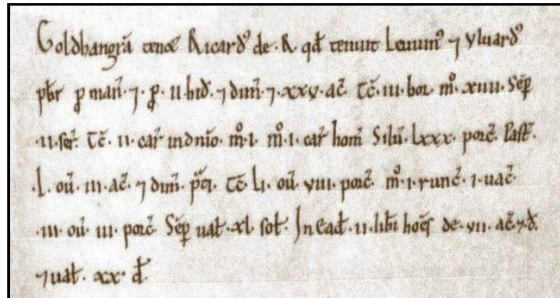 Goldhangrā tenet Ricard9 de · R · qđ tenuit Leuuin9 ⁊ Vluard9
pbr ꝓ mañ · ⁊ · ꝓ · II · hiđ · ⁊ dim̄ · ⁊ · xxv · ac̄ · Tc̄ · III · bor · m̊ · XIIII · Sēp
· II · ser̄ · Tc̄ · II · car̄ in dn̄io · m̊ · I · m̊ · I · car̄ hom̄ · Silū · Lxxx · porc̄ · Past̄ ·
· L · où · III · ac̄ · ⁊ dim̄ · p̄ti · Tc̄ · LI · où · VIII · porc̄ · m̊ · I · runc̄ · I · uac̄ ·
· III · où · III · porc̄ · Sēp uat · XL · sot · In Eađ · II · libi hoēs de · VII · ac̄ · ⁊ đ ·
⁊ uat · xx · đ ·